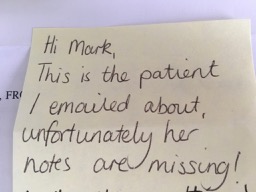 Hi Mark,
This is the patient
, FR
I emailed about,
unfortunately her
notes are missing!